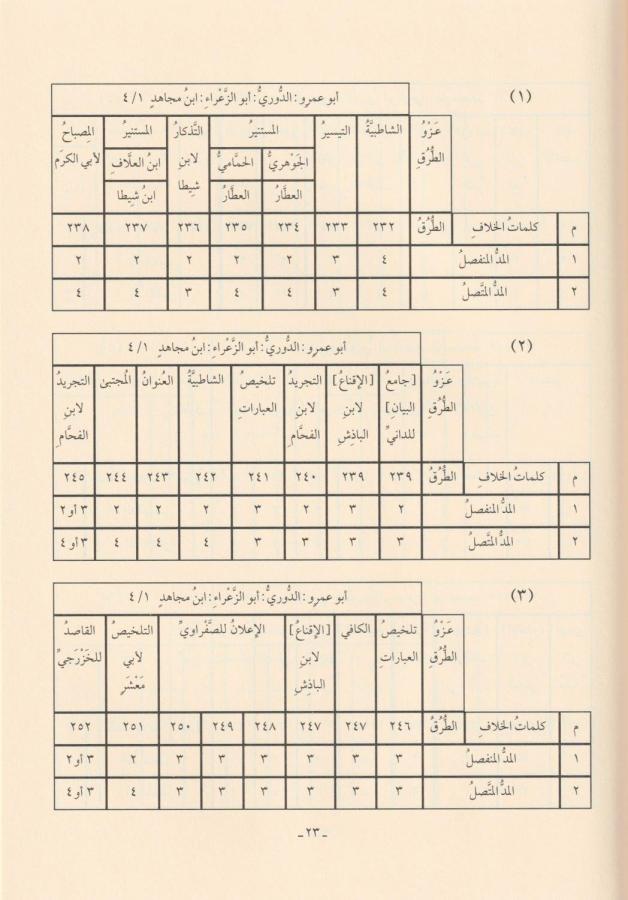 (١)
أبو عمرو: الدُّوريُّ: أبو الزَّعْراءِ: ابنُ مجاهدٍ ٤/١
عَزْوُ الطُّرُقِ الشاطبيَّةُ التيسيرُ المستنيرُ التَّذكارُ المستنيرُ المِصباحُ
الجَوْهريُّ الحمَّاميُّ لابنِ شِيطا ابنُ العلَّافِ لأبي الكرَمِ
العطَّارُ العطَّارُ ابنُ شِيطا
م كلماتُ الخلافِ الطُّرُقُ ٢٣٢ ٢٣٣ ٢٣٤ ٢٣٥ ٢٣٦ ٢٣٧ ٢٣٨
١ المدُّ المنفصلُ ٤ ٣ ٢ ٢ ٢ ٢ ٢
٢ المدُّ المتَّصلُ ٤ ٣ ٤ ٤ ٣ ٤ ٤
(٢)
أبو عمرو: الدُّوريُّ: أبو الزَّعْراءِ: ابنُ مجاهدٍ ٤/١
عَزْوُ [جامعُ [الإقناعُ] التجريدُ تلخيصُ الشاطبيَّةُ العُنوانُ المُجتبىٰ التجريدُ
الطُّرُقِ البيانِ] لابنِ لابنِ العباراتِ لابنِ
للدانيِّ الباذِشِ الفحَّامِ الفحَّامِ
م كلماتُ الخلافِ الطُّرُقُ ٢٣٩ ٢٣٩ ٢٤٠ ٢٤١ ٢٤٢ ٢٤٣ ٢٤٤ ٢٤٥
١ المدُّ المنفصلُ ٢ ٣ ٢ ٣ ٢ ٢ ٢ ٣ أو ٢
٢ المدُّ المتَّصلُ ٣ ٣ ٣ ٣ ٤ ٤ ٤ ٣ أو ٤
(٣)
أبو عمرو: الدُّوريُّ: أبو الزَّعْراءِ: ابنُ مجاهدٍ ٤/١
عَزْوُ تلخيصُ الكافي [الإقناعُ] الإعلانُ للصَّفْراويِّ التلخيصُ القاصدُ
الطُّرُقِ العباراتِ لابنِ لأبي للخَزْرَجيِّ
الباذِشِ مَعْشَرٍ
م كلماتُ الخلافِ الطُّرُقُ ٢٤٦ ٢٤٧ ٢٤٧ ٢٤٨ ٢٤٩ ٢٥٠ ٢٥١ ٢٥٢
١ المدُّ المنفصلُ ٣ ٣ ٣ ٣ ٣ ٣ ٢ ٣ أو ٢
٢ المدُّ المتَّصلُ ٣ ٣ ٣ ٣ ٣ ٣ ٤ ٣ أو ٤
-٢٣-